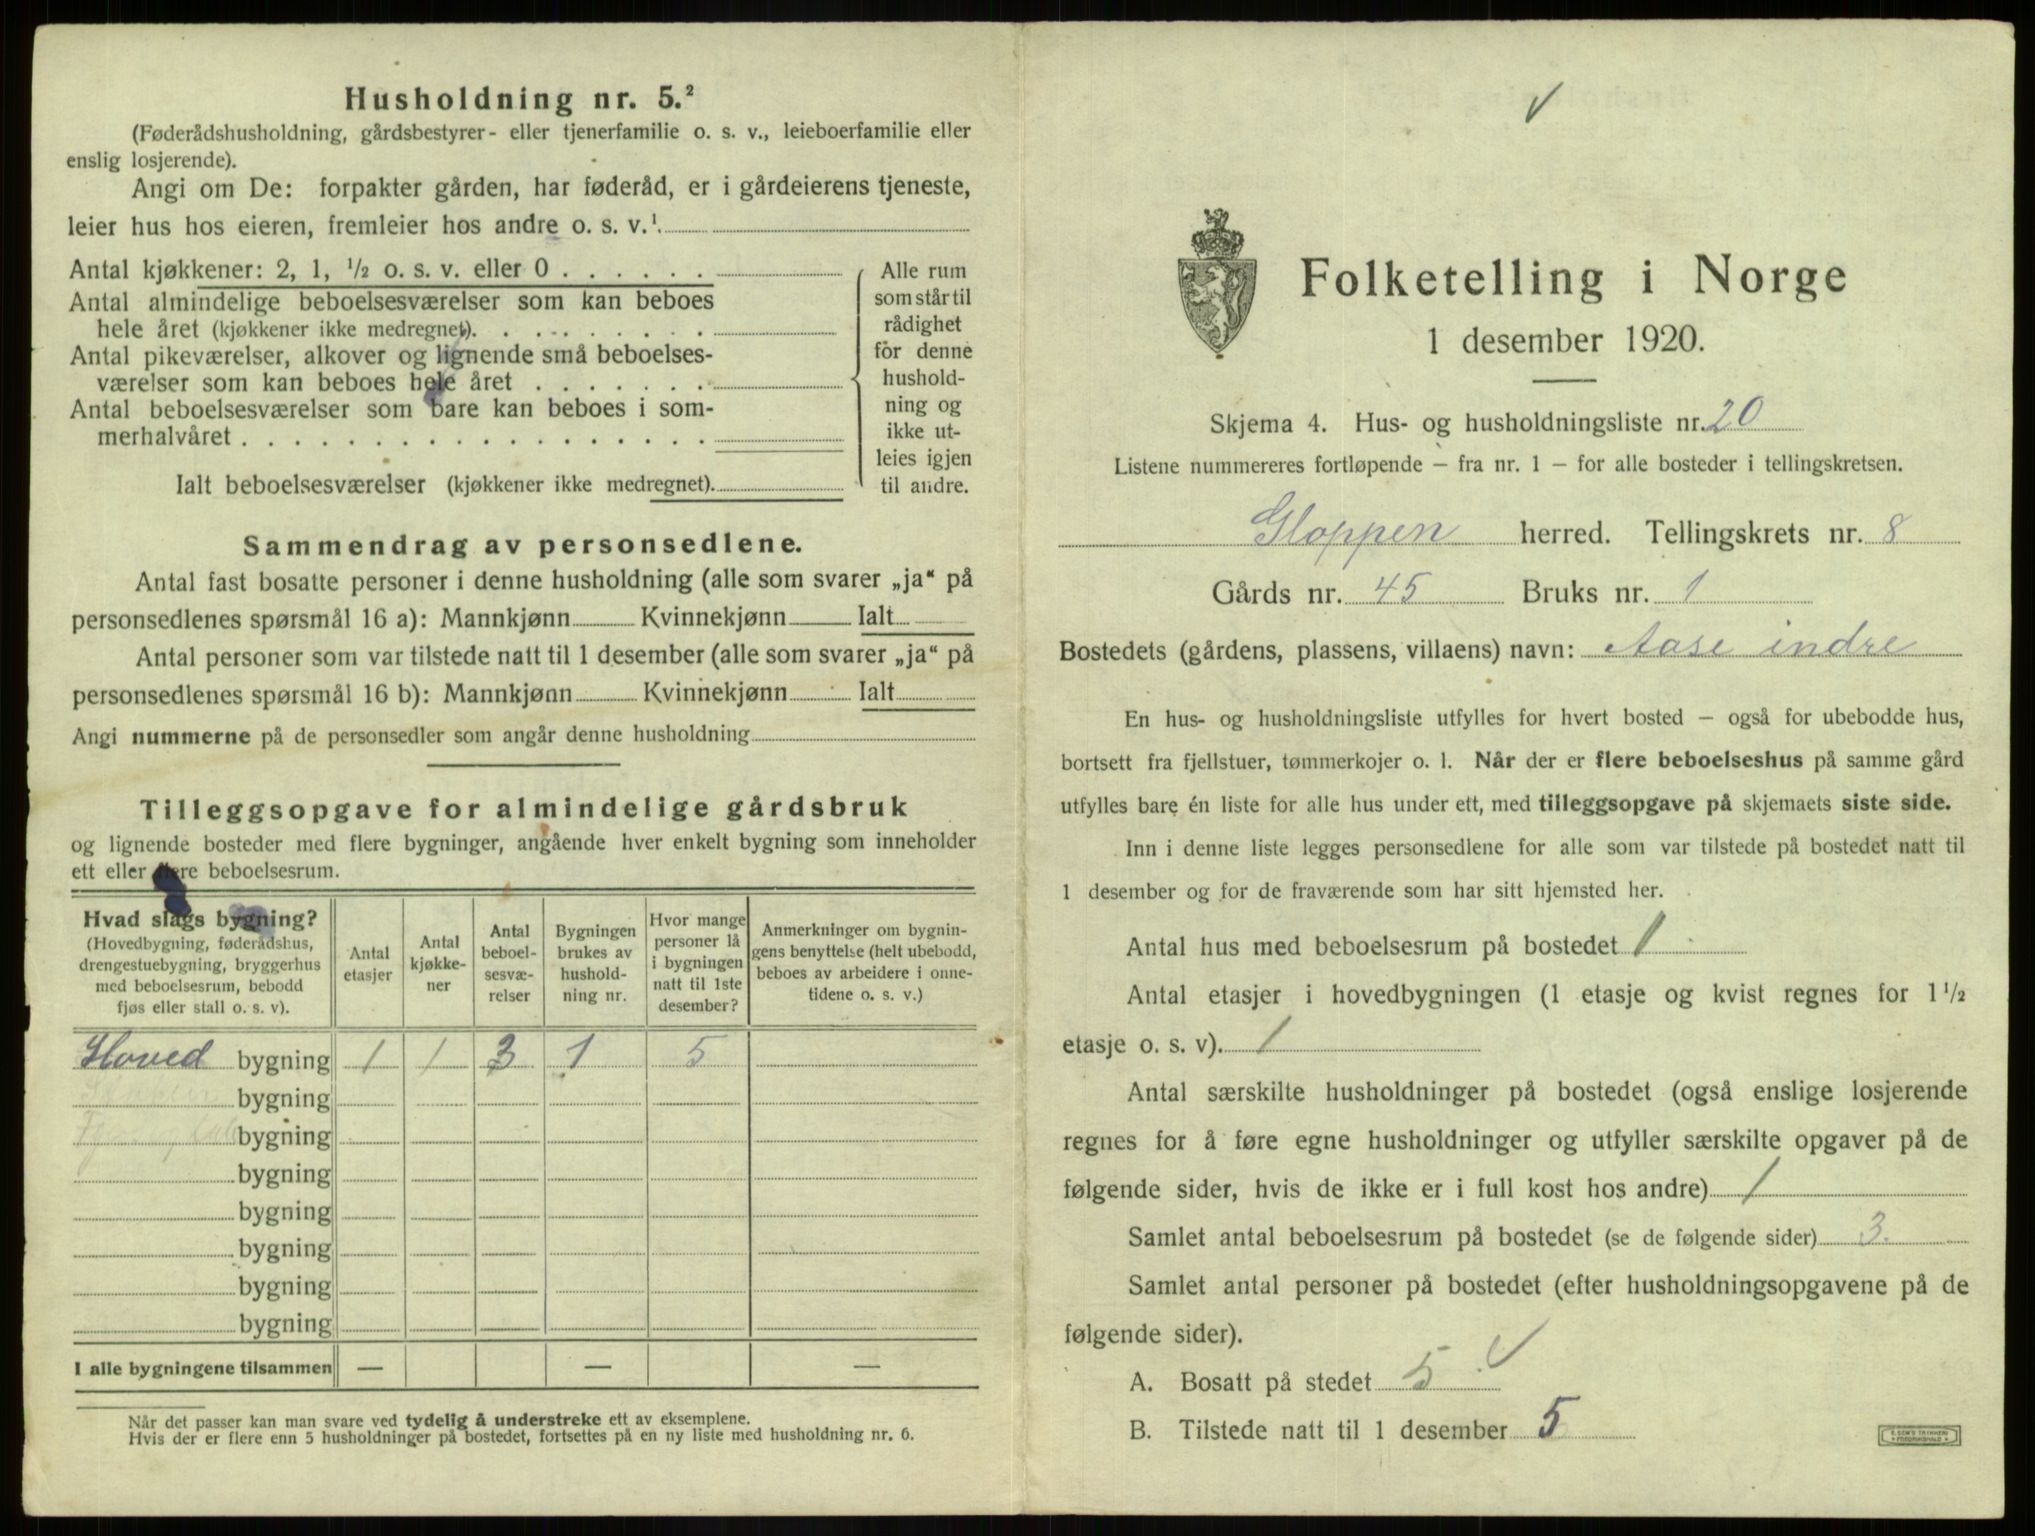 Husholdning nr. 5.²
(Føderådshusholdning, gårdsbestyrer- eller tjenerfamilie o. s. v., leieboerfamilie eller
enslig losjerende).
Angi om De: forpakter gården, har føderåd, er i gårdeierens tjeneste,
leier hus hos eieren, fremleier hos andre o. s. v.¹
Antal kjøkkener: 2, 1, ½ o. s. v. eller 0 . . . . . .
Antal almindelige beboelsesværelser som kan beboes
hele året (kjøkkener ikke medregnet). . . . . . . . .
Antal pikeværelser, alkover og lignende små beboelses-
værelser som kan beboes hele året . . . . . . .
Antal beboelsesværelser som bare kan beboes i som-
merhalvåret . . . . . . . . . . . . . . . . . .
Ialt beboelsesværelser (kjøkkener ikke medregnet).
Alle rum
som står til
rådighet
for denne
hushold-
ning og
ikke ut-
leies igjen
til andre.
Sammendrag av personsedlene.
Antal fast bosatte personer i denne husholdning (alle som svarer „ja“ på
personsedlenes spørsmål 16 a): Mannkjønn Kvinnekjønn Ialt
Antal personer som var tilstede natt til 1 desember (alle som svarer „ja“ på
personsedlenes spørsmål 16 b): Mannkjønn Kvinnekjønn Ialt
Angi nummerne på de personsedler som angår denne husholdning
Tilleggsopgave for almindelige gårdsbruk
og lignende bosteder med flere bygninger, angående hver enkelt bygning som inneholder
ett eller flere beboelsesrum.
Hvad slags bygning?
(Hovedbygning, føderådshus,
drengestuebygning, bryggerhus
med beboelsesrum, bebodd
fjøs eller stall o. s. v).
Antal
etasjer
Antal
kjøkke-
ner
Antal
beboel-
sesvæ-
relser
Bygningen
brukes av
hushold-
ning nr.
Hvor mange
personer lå
i bygningen
natt til 1ste
desember?
Anmerkninger om bygnin-
gens benyttelse (helt ubebodd,
beboes av arbeidere i onne-
tidene o. s. v.)
Hoved bygning 1 1 3 1 5
bygning
bygning
bygning
bygning
bygning
bygning
bygning
I alle bygningene tilsammen — — —
Når det passer kan man svare ved tydelig å understreke ett av eksemplene.
Hvis der er flere enn 5 husholdninger på bostedet, fortsettes på en ny liste med husholdning nr. 6.
Folketelling i Norge
1 desember 1920.
Skjema 4. Hus- og husholdningsliste nr. 20
Listene nummereres fortløpende — fra nr. 1 — for alle bosteder i tellingskretsen.
Gloppen herred. Tellingskrets nr. 8
Gårds nr. 45 Bruks nr. 1
Bostedets (gårdens, plassens, villaens) navn: Aase indre
En hus- og husholdningsliste utfylles for hvert bosted — også for ubebodde hus,
bortsett fra fjellstuer, tømmerkojer o. l. Når der er flere beboelseshus på samme gård
utfylles bare én liste for alle hus under ett, med tilleggsopgave på skjemaets siste side.
Inn i denne liste legges personsedlene for alle som var tilstede på bostedet natt til
1 desember og for de fraværende som har sitt hjemsted her.
Antal hus med beboelsesrum på bostedet 1
Antal etasjer i hovedbygningen (1 etasje og kvist regnes for 1½
etasje o. s. v). 1
Antal særskilte husholdninger på bostedet (også enslige losjerende
regnes for å føre egne husholdninger og utfyller særskilte opgaver på de
følgende sider, hvis de ikke er i full kost hos andre) 1
Samlet antal beboelsesrum på bostedet (se de følgende sider) 3.
Samlet antal personer på bostedet (efter husholdningsopgavene på de
følgende sider).
A. Bosatt på stedet 5
B. Tilstede natt til 1 desember 5